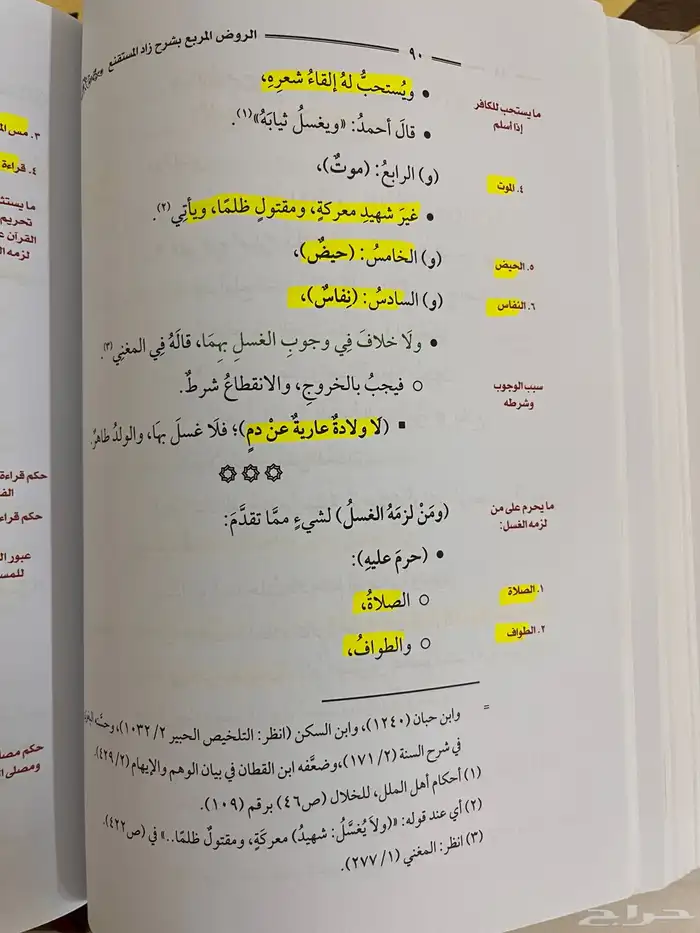 الروض المربع بشرح زاد المستقنع
٩٠
ويُستحبُّ لهُ إلقاءُ شعرِهِ،
ما يستحب للكافر
إذا أسلم
قالَ أحمدُ: «ويغسلُ ثيابَهُ»(١).
(و) الرابعُ: (موتٌ)،
٤. الموت
غيرَ شهيدِ معركةٍ، ومقتولٍ ظلمًا، ويأتِي(٢).
(و) الخامسُ: (حيضٌ)،
٥. الحيض
(و) السادسُ: (نِفاسٌ)،
٦. النفاس
ولَا خلافَ فِي وجوبِ الغسلِ بهِمَا، قالَهُ فِي المغنِي(٣).
فيجبُ بالخروجِ، والانقطاعُ شرطٌ.
سبب الوجوب
وشرطه
(لَا ولادةٌ عاريةٌ عنْ دمٍ)؛ فلَا غسلَ بهَا، والولدُ طاهرٌ.
(ومَنْ لزمَهُ الغسلُ) لشيءٍ ممَّا تقدَّمَ:
ما يحرم على من
لزمه الغسل:
(حرمَ عليهِ):
الصلاةُ،
١. الصلاة
والطوافُ،
٢. الطواف
= وابن حبان (١٢٤٠)، وابن السكن (انظر: التلخيص الحبير ٢/ ١٠٣٢)، وحسَّنه
في شرح السنة (٢/ ١٧١)، وضعَّفه ابن القطان في بيان الوهم والإيهام (٢/ ٤٢٩).
(١) أحكام أهل الملل، للخلال (ص٤٦) برقم (١٠٩).
(٢) أي عند قوله: «(ولاَ يُغَسَّلُ: شهيدُ) معركَةٍ، ومقتولٌ ظلمًا..» في (ص٤٢٢).
(٣) انظر: المغني (١/ ٢٧٧).
٣. مس
٤. قراءة
ما يستثن
تحريم
القرآن
لزمه
حكم قراءة
حكم قراء
عبور
للمس
حكم مصلى
ومصلى
حراج